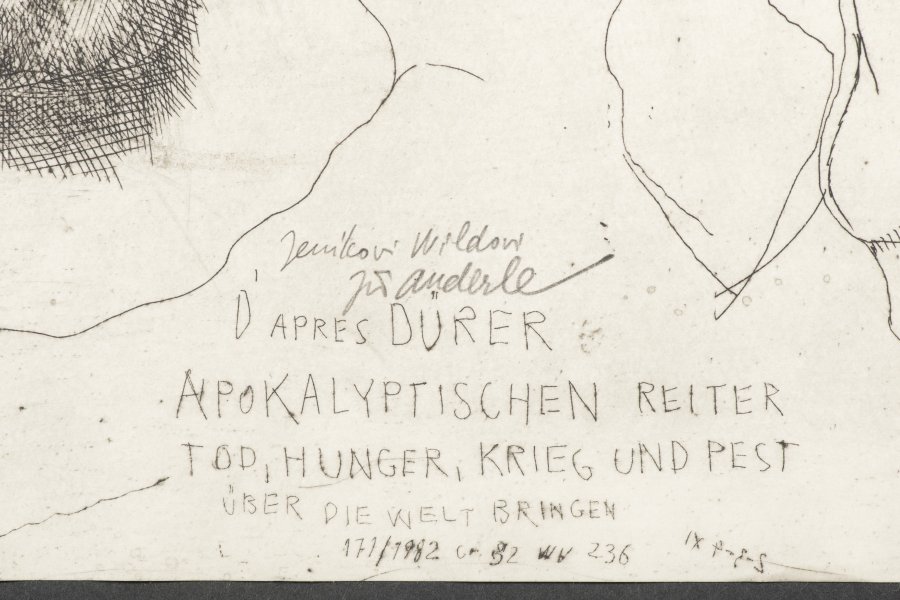 Jeníkovi Wildovi
Jiří Anderle
D'APRES DÜRER
APOKALYPTISCHEN REITER
TOD, HUNGER, KRIEG UND PEST
ÜBER DIE WELT BRINGEN
171/1982 82 WV 236 IX